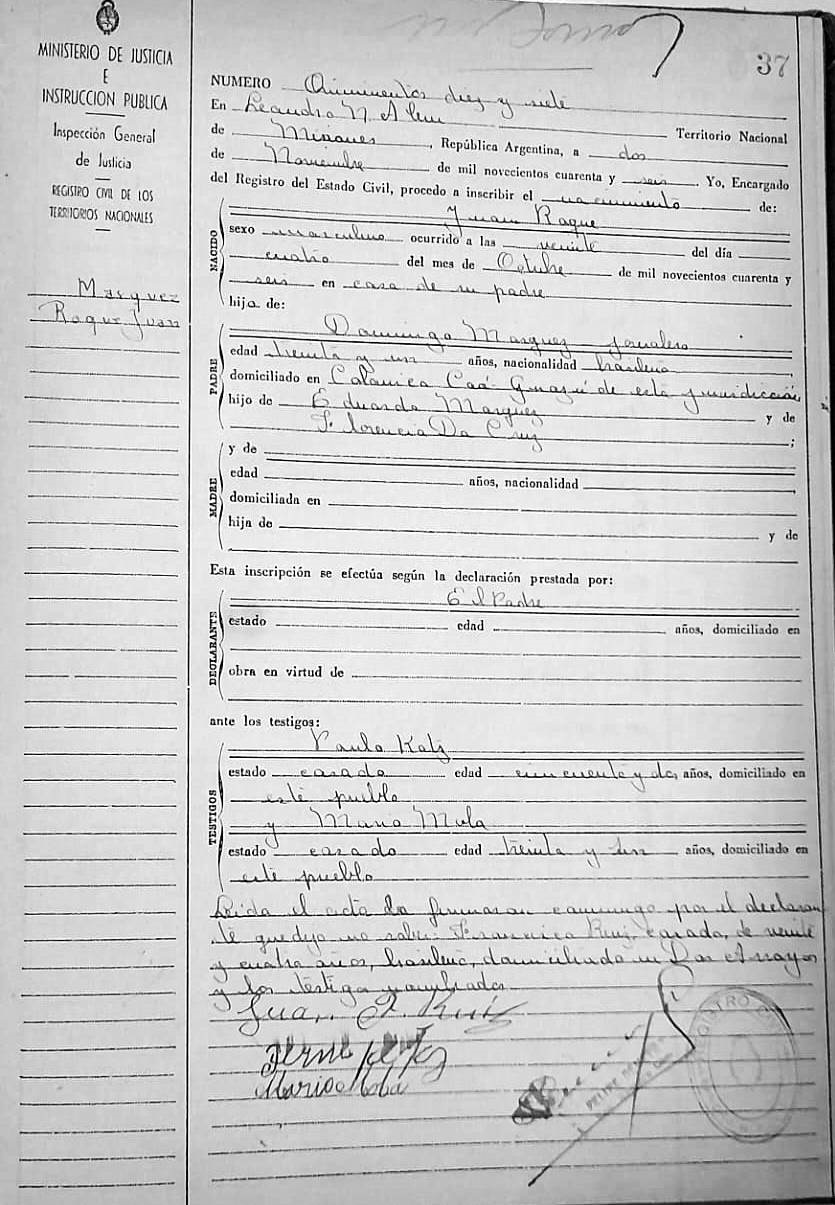 MINISTERIO DE JUSTICIA
E
INSTRUCCION PUBLICA
Inspección General
de Justicia
REGISTRO CIVIL DE LOS
TERRITORIOS NACIONALES
Marquez
Roque Juan
37
NUMERO Quinientos diez y siete
En Leandro N. Alem Territorio Nacional
de Misiones, República Argentina, a dos
de Noviembre de mil novecientos cuarenta y seis. Yo, Encargado
del Registro del Estado Civil, procedo a inscribir el nacimiento de:
NACIDO
Juan Roque
sexo masculino ocurrido a las veinte del día
cuatro del mes de Octubre de mil novecientos cuarenta y
seis en casa de su padre
hijo de:
PADRE
Domingo Marquez jornalero
edad treinta y un años, nacionalidad brasileño,
domiciliado en Colonia Caá-Guazú de esta jurisdicción
hijo de Eduardo Marquez y de
Florencia Da Cruz;
MADRE
y de
edad años, nacionalidad,
domiciliada en
hija de y de
Esta inscripción se efectúa según la declaración prestada por:
DECLARANTE
El Padre
estado edad años, domiciliado en
obra en virtud de
ante los testigos:
TESTIGOS
Paulo Katz
estado casado edad cincuenta y dos años, domiciliado en
este pueblo
y Mario Mola
estado casado edad treinta y un años, domiciliado en
este pueblo
Leida el acta la firmaron conmigo por el declaran
te que dijo no saber: Francisco Ruiz, casado, de veinte
y cuatro años, brasileño, domiciliado en Dos Arroyos
y los testigos nombrados.
Juan Ruiz
Mario Mola
REGISTRO CIVIL
FELIPE